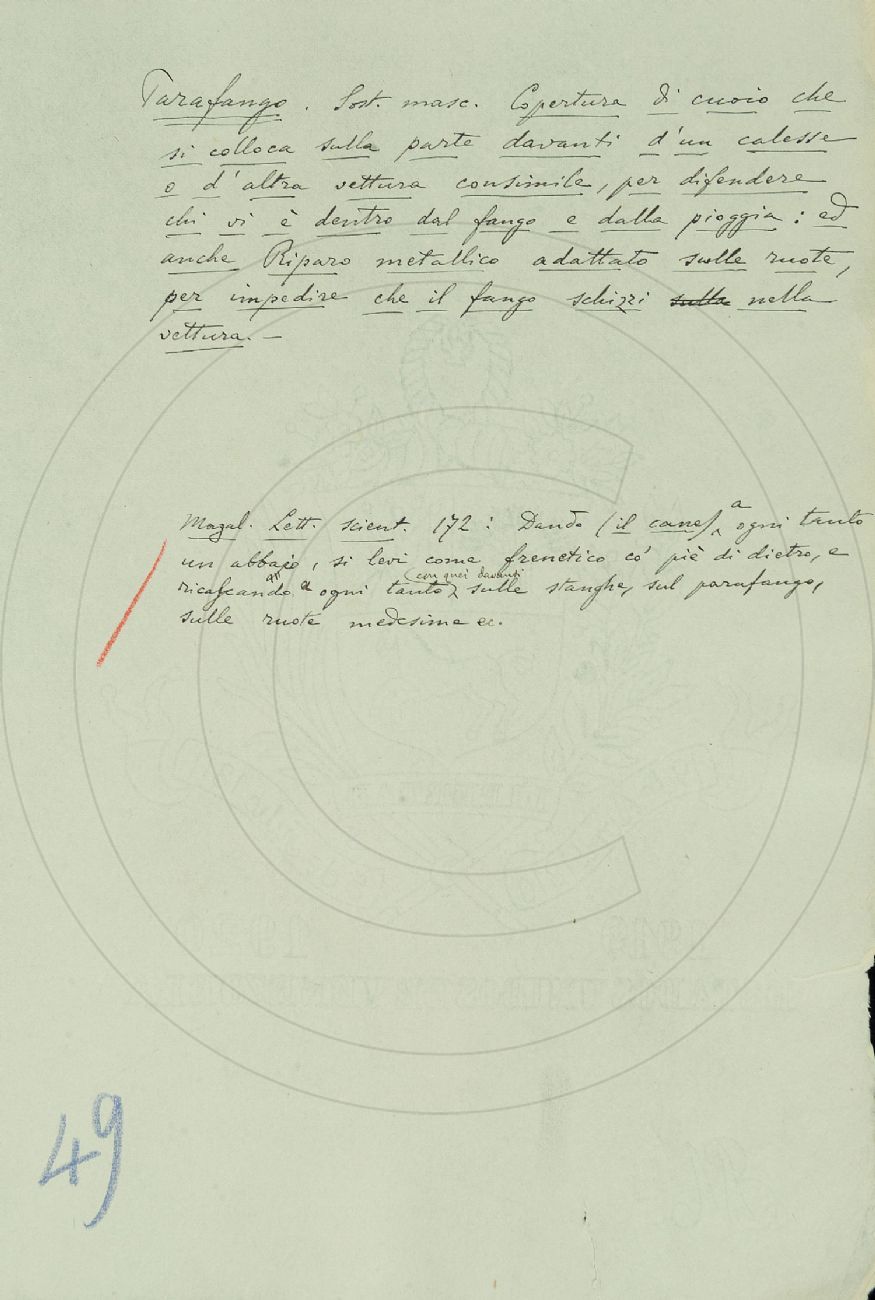 Parafango. Sost. masc. Copertura di cuoio che
si colloca sulla parte davanti d'un calesse
o d'altra vettura consimile, per difendere
chi vi è dentro dal fango e dalla pioggia: ed
anche Riparo metallico adattato sulle ruote,
per impedire che il fango schizzi sulla nella
vettura. —
Magal. Lett. scient. 172: Dando (il cane) a ogni tanto
un abbajo, si levi come frenetico co' piè di dietro, e
ricalcando a ogni tanto con quei davanti sulle stanghe, sul parafango,
sulle ruote medesime ec.
49